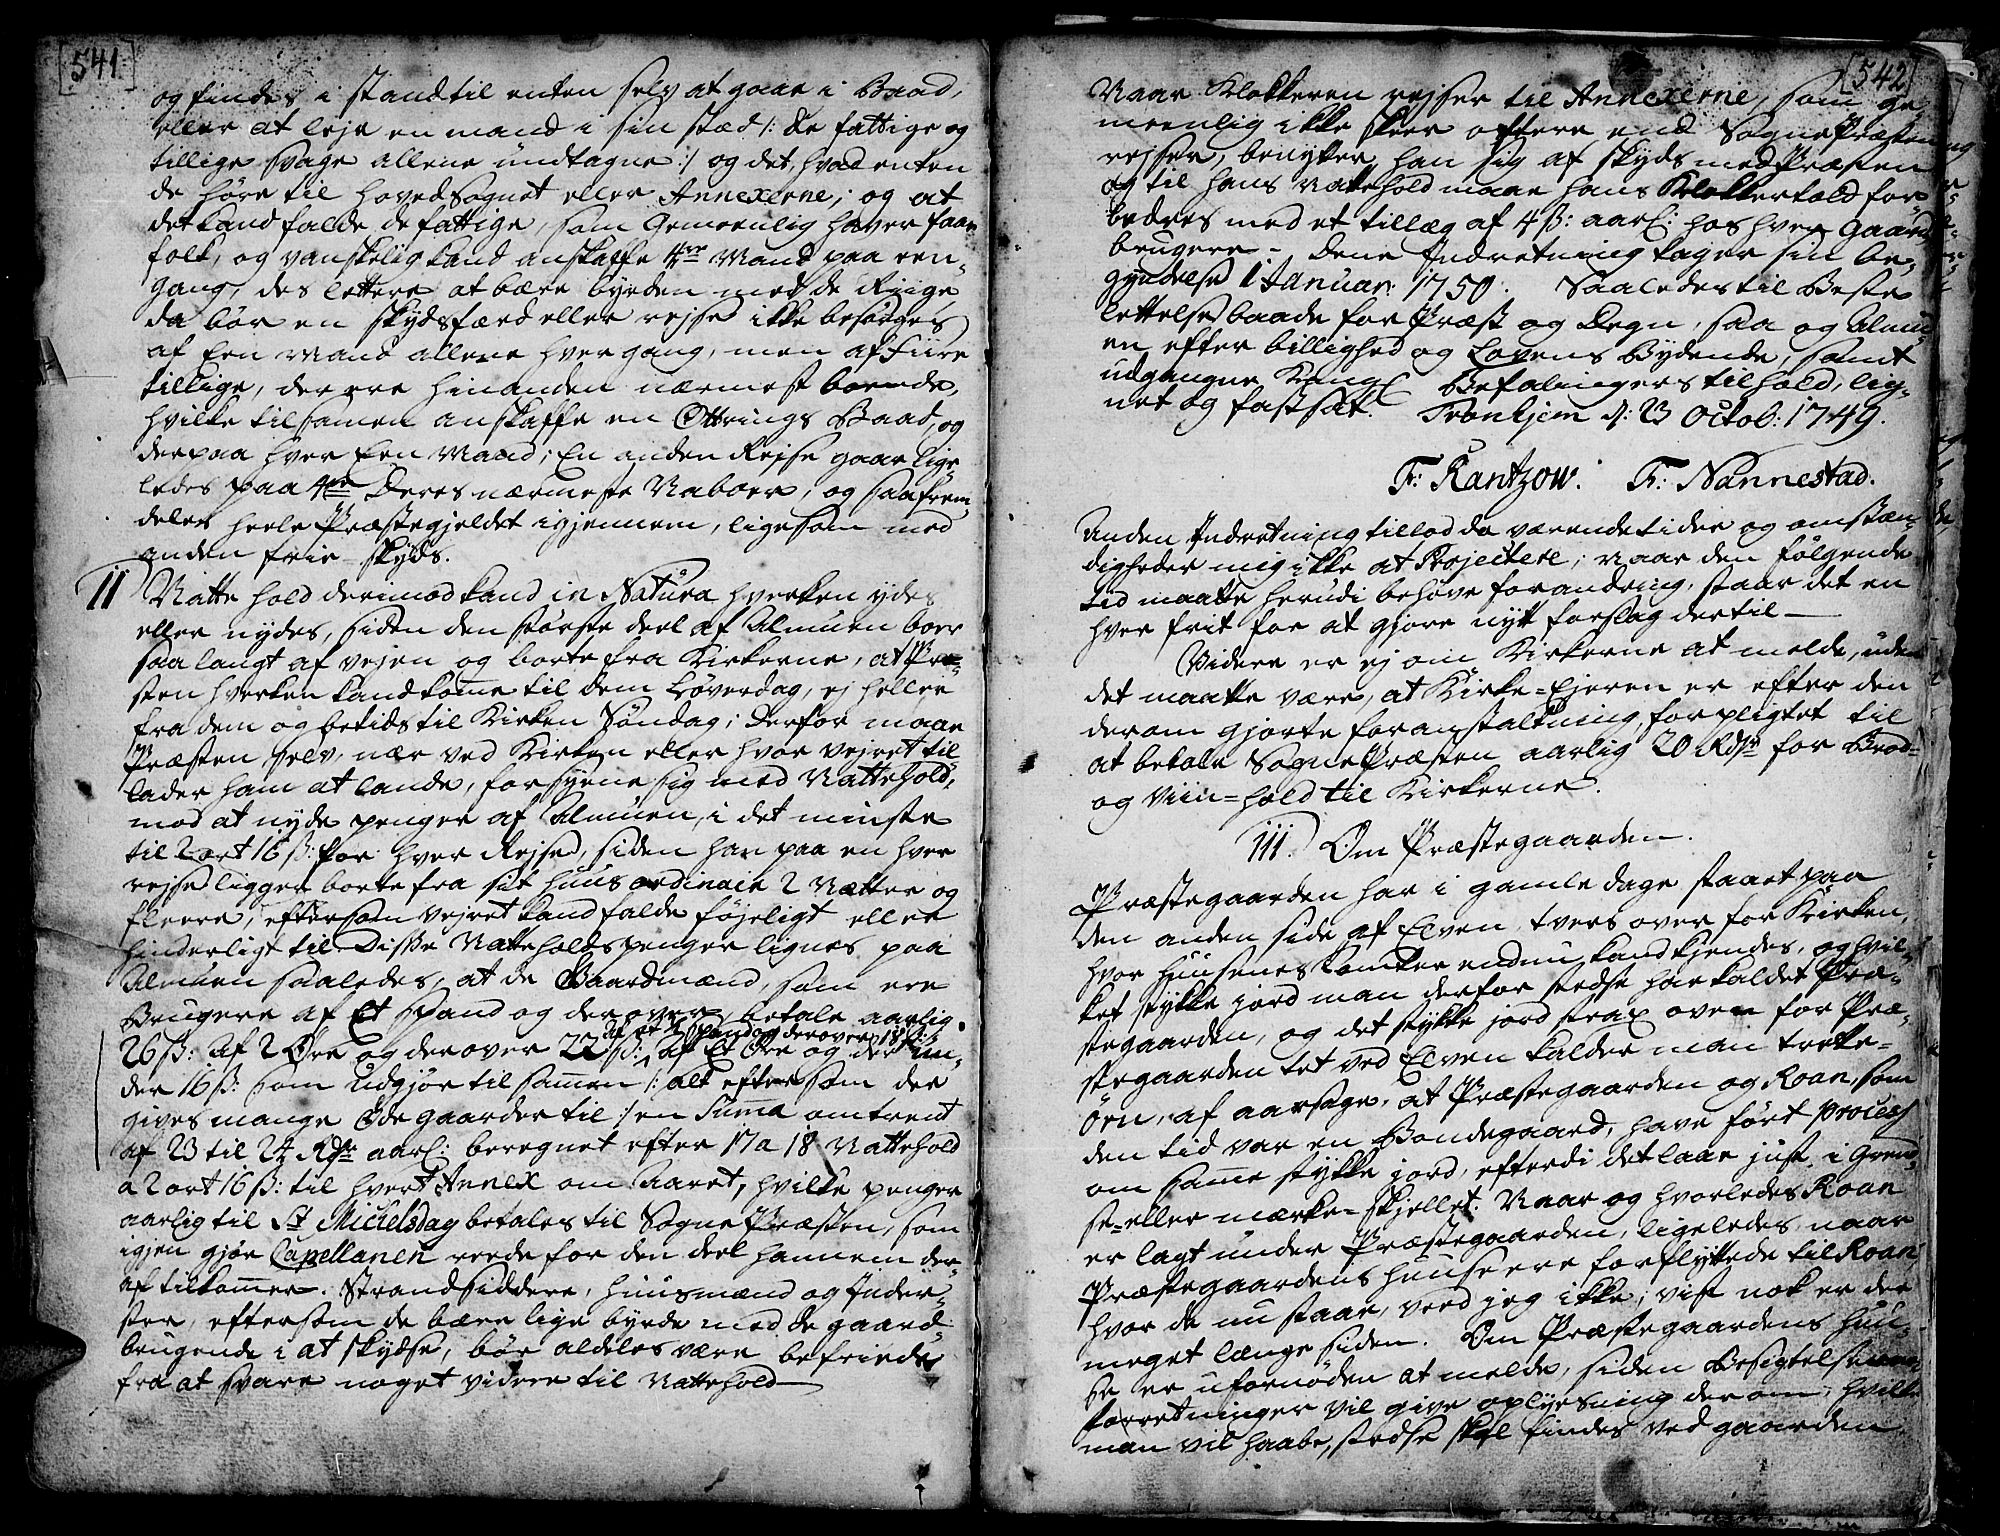 [541]
og findes i stand til enten selv at gaae i Baad,
eller at leje en mand i sin stæd /: de fattige og
tillige svage allene undtagne :/ og det, hvad enten
de høre til HovedSognet eller Annexerne; og at
det kand falde de fattige, som Gemeenlig haver faae
folk, og vanskelig kand anskaffe 4re Mand paa een
gang, des lettere at bære byrden med de Riige
da bør en skydsfærd eller rejse ikke besørges
af Een Mand allene hver gang, men af Fiire
tillige, der ere hinanden nærmest boende,
hvilke tilsamen anskaffe en Ottrings Baad, og
derpaa hver Een Mand; En anden Rejse gaar lige-
ledes paa 4re Deres nærmeste Naboer, og saa frem-
deles heele Præstegjeldet igjennem, ligesom med
anden frie skyds.
11 Natte hold derimod kand in Natura hverken ydes
eller nydes, siden den største deel af Almuen boer
saa langt af vejen og borte fra Kirkerne, at Præ-
sten hverken kand komme til dem Løverdag, ej heller
fra dem og betids til Kirken Søndag; derfor maae
Præsten selv, nær ved Kirken eller hvor vejret til-
lader ham at lande, forsyene sig med Nattehold,
mod at nyde penger af Almuen, i det minste
til 2 ort 16 ß: for hver Rejse, siden han paa en hver
rejse ligger borte fra sit huus ordinair 2 Nætter og
fleere, eftersom vejret kand falde føjeligt eller
hinderligt til. Disse Natteholdspenger lignes paa
Almuen saaledes, at de Gaardmænd, som ere
Brugere af Et Spand og derover, betale aarlig
af et ½ Spand og derover 18 ß:
26 ß: af 2 Øre og derover 22 ß: af Et Øre og der un-
der 16 ß: som udgjør til sammen /: alt eftersom der
gives mange Øde gaarder til :/ en Summa omtrent
af 23 til 24 Rdr aarl: beregnet efter 17 a 18 Nattehold
a 2 ort 16 ß: til hvert Annex om Aaret, hvilke penger
aarlig til St Michelsdag betales til SognePræsten, som
igjen gjør Capellanen reede for den deel hannem der-
af tilkommer. Strandsiddere, huusmænd og Inder-
ster, eftersom de bære lige byrde med de gaard-
brugende i at skydse, bør aldeles være befriede
fra at svare noget videre til Nattehold
[542]
Naar Klokkeren rejser til Annexerne, som ge-
meenlig ikke skeer oftere end SognePræsten
rejser, benytter han sig af skyds med Præsten
og til hans Nattehold maae hans Klokkertold for-
bedres med et tillæg af 4 ß: aarl: hos hver Gaard-
brugere - Dene Indretning tager sin be-
gyndelse 1 Januar: 1750. Saaledes til Beste
lettelse baade for Præst og Degn, saa og Almu-
en efter billighed og Lovens Bydende, samt
udgangne Kongl Befalingers tilhold, lig-
net og fastsat. Tronhjem d: 23 Octob: 1749.
F: Rantzow. F: Nannestad.
Anden Indretning tillod da værende tider og omstæn-
digheder mig ikke at Projectere; Naar den følgende
tid maatte herudi behøve forandring, staar det en
hver frit for at gjøre nytt forslag dertil
Videre er ej om Kirkerne at melde, uden
det maatte være, at Kirke-Ejeren er efter den
derom gjorte foranstaltning forpligtet til
at betale SognePræsten aarlig 20 Rdr for Brød-
og Viin-hold til Kirkerne.
III. Om Præstegaarden.
Præstegaarden har i gamle dage staaet paa
den anden side af Elven tvers over for Kirken,
hvor Huusenes tomter endnu kand kjendes, og hvil-
ket stykke jord man derfor stedse har kaldet Præ-
stegaarden, og det stykke jord strax oven for Præ-
stegaarden tet ved Elven kalder man trette-
ören, af aarsage, at Præstegaarden og Roan, som
den tid var en Bondegaard, have ført Process
om samme stykke jord, efterdi det laae just i Grend-
se- eller mærke-skjellet. Naar og hvorledes Roan
er lagt under Præstegaarden, ligeledes naar
Præstegaardens huuse ere forflyttede til Roan,
hvor de nu staae, veed jeg ikke; vist nok er det
meget længe siden. Om Præstegaardens huu-
se er ufornøden at melde, siden Besigtelses
forretninger vil give oplyesning derom, hvilke
man vil haabe, stedse skal findes ved gaarden.